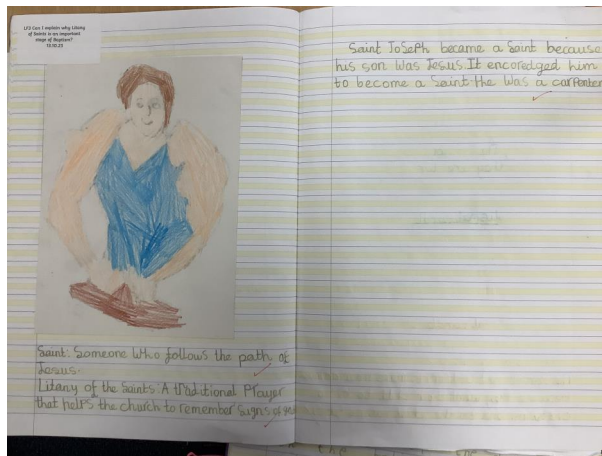 LF2 Can I explain why Litany
of Saints is an important
stage of Baptism?
12.10.23
Saint: Someone who follows the path of
Jesus.
Litany of the Saints: A traditional Prayer
that helps the church to remember signs of
Saint Joseph became a Saint because
his son was Jesus. It encoredged him
to become a Saint the was a carpenter